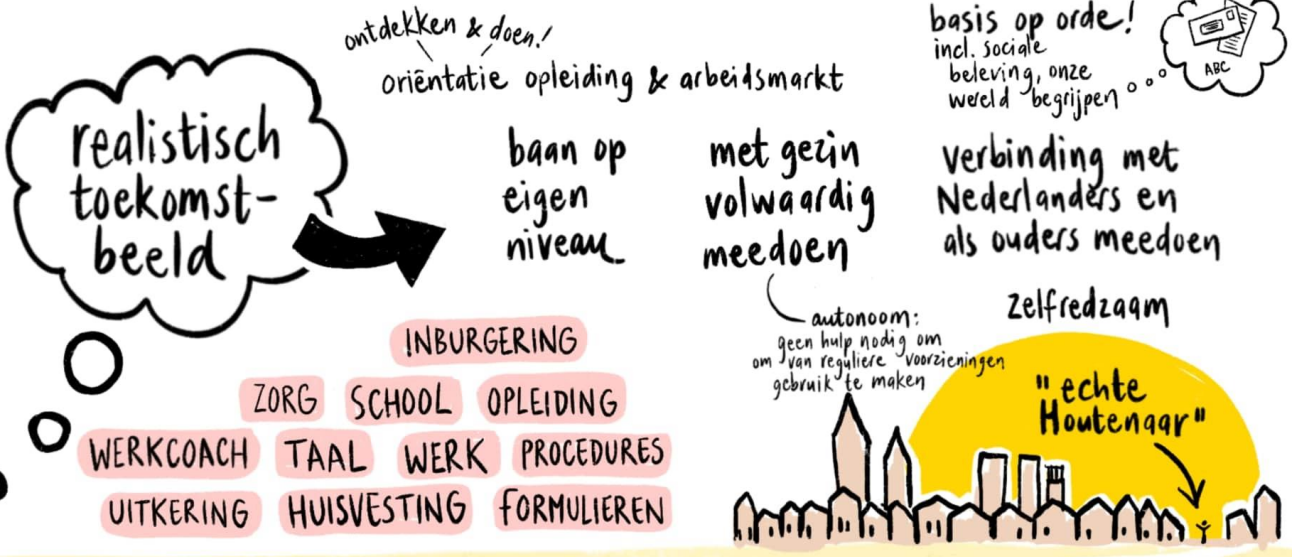 ontdekken & doen!
oriëntatie opleiding & arbeidsmarkt
basis op orde!
incl. sociale
beleving, onze
wereld begrijpen
ABC
realistisch
toekomst-
beeld
baan op
eigen
niveau
met gezin
volwaardig
meedoen
verbinding met
Nederlanders en
als ouders meedoen
autonoom:
geen hulp nodig om
om van reguliere voorzieningen
gebruik te maken
zelfredzaam
"echte
Houtenaar"
INBURGERING
ZORG SCHOOL OPLEIDING
WERKCOACH TAAL WERK PROCEDURES
UITKERING HUISVESTING FORMULIEREN